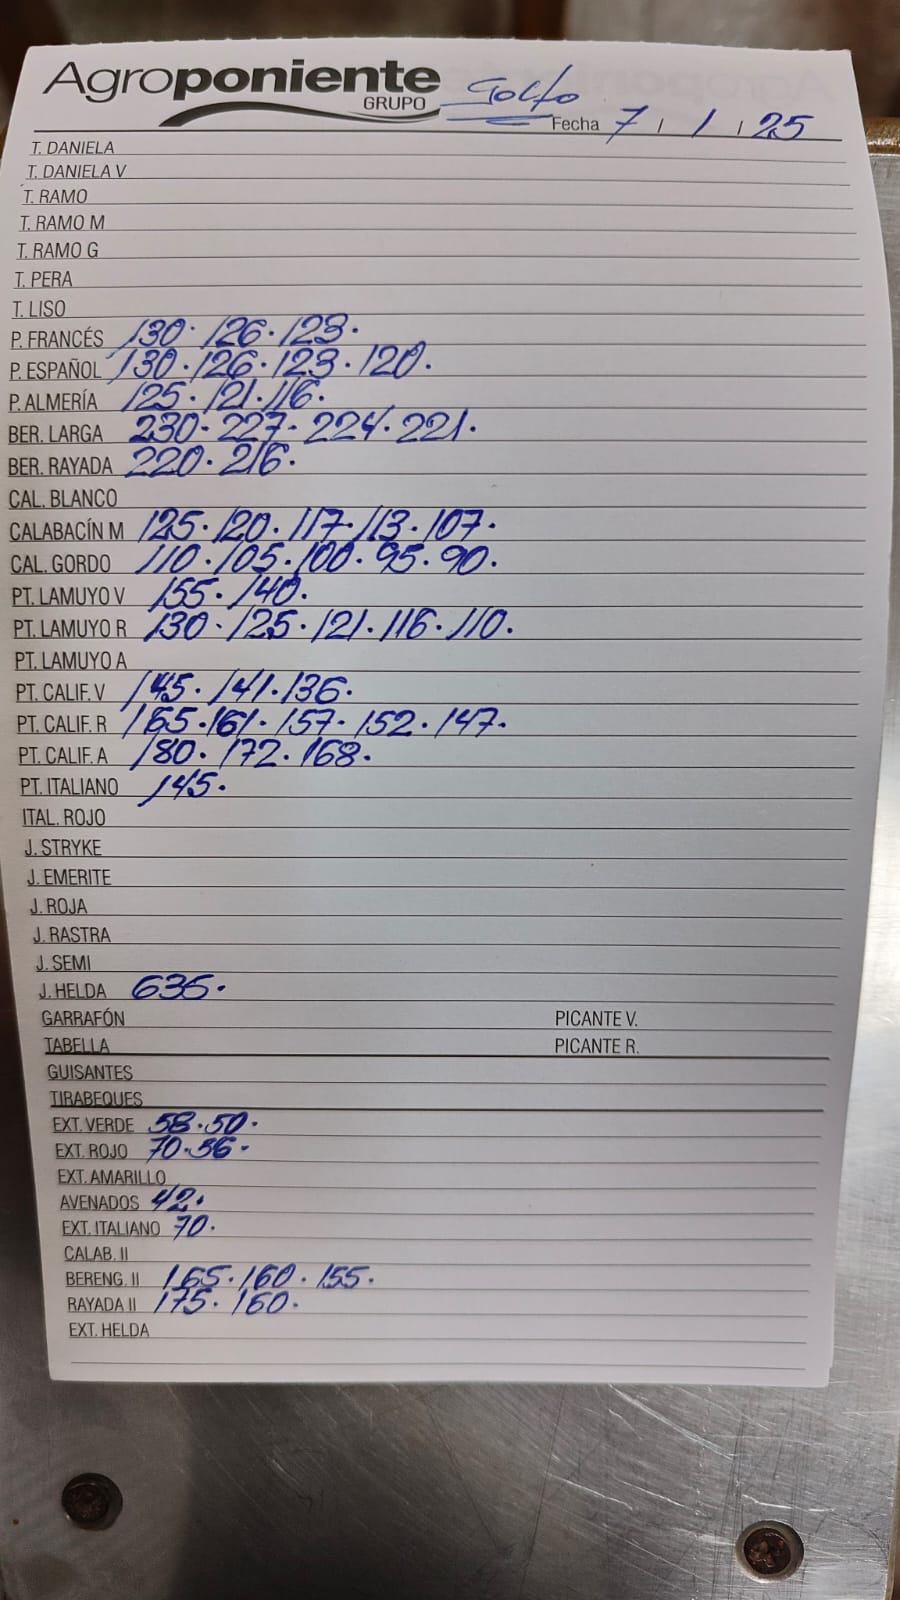 Agroponiente
GRUPO
Golfo
Fecha 7 / 1 / 25
T. DANIELA
T. DANIELA V
T. RAMO
T. RAMO M
T. RAMO G
T. PERA
T. LISO
P. FRANCÉS 130. 126. 123.
P. ESPAÑOL 130. 126. 123. 120.
P. ALMERÍA 125. 121. 116.
BER. LARGA 230. 227. 224. 221.
BER. RAYADA 220. 216.
CAL. BLANCO
CALABACÍN M 125. 120. 117. 113. 107.
CAL. GORDO 110. 105. 100. 95. 90.
PT. LAMUYO V 155. 140.
PT. LAMUYO R 130. 125. 121. 116. 110.
PT. LAMUYO A
PT. CALIF. V 145. 141. 136.
PT. CALIF. R 165. 161. 157. 152. 147.
PT. CALIF. A 180. 172. 168.
PT. ITALIANO 145.
ITAL. ROJO
J. STRYKE
J. EMERITE
J. ROJA
J. RASTRA
J. SEMI
J. HELDA 635.
GARRAFÓN PICANTE V.
TABELLA PICANTE R.
GUISANTES
TIRABEQUES
EXT. VERDE 58. 50.
EXT. ROJO 70. 56.
EXT. AMARILLO
AVENADOS 42.
EXT. ITALIANO 70.
CALAB. II
BERENG. II 165. 160. 155.
RAYADA II 175. 160.
EXT. HELDA